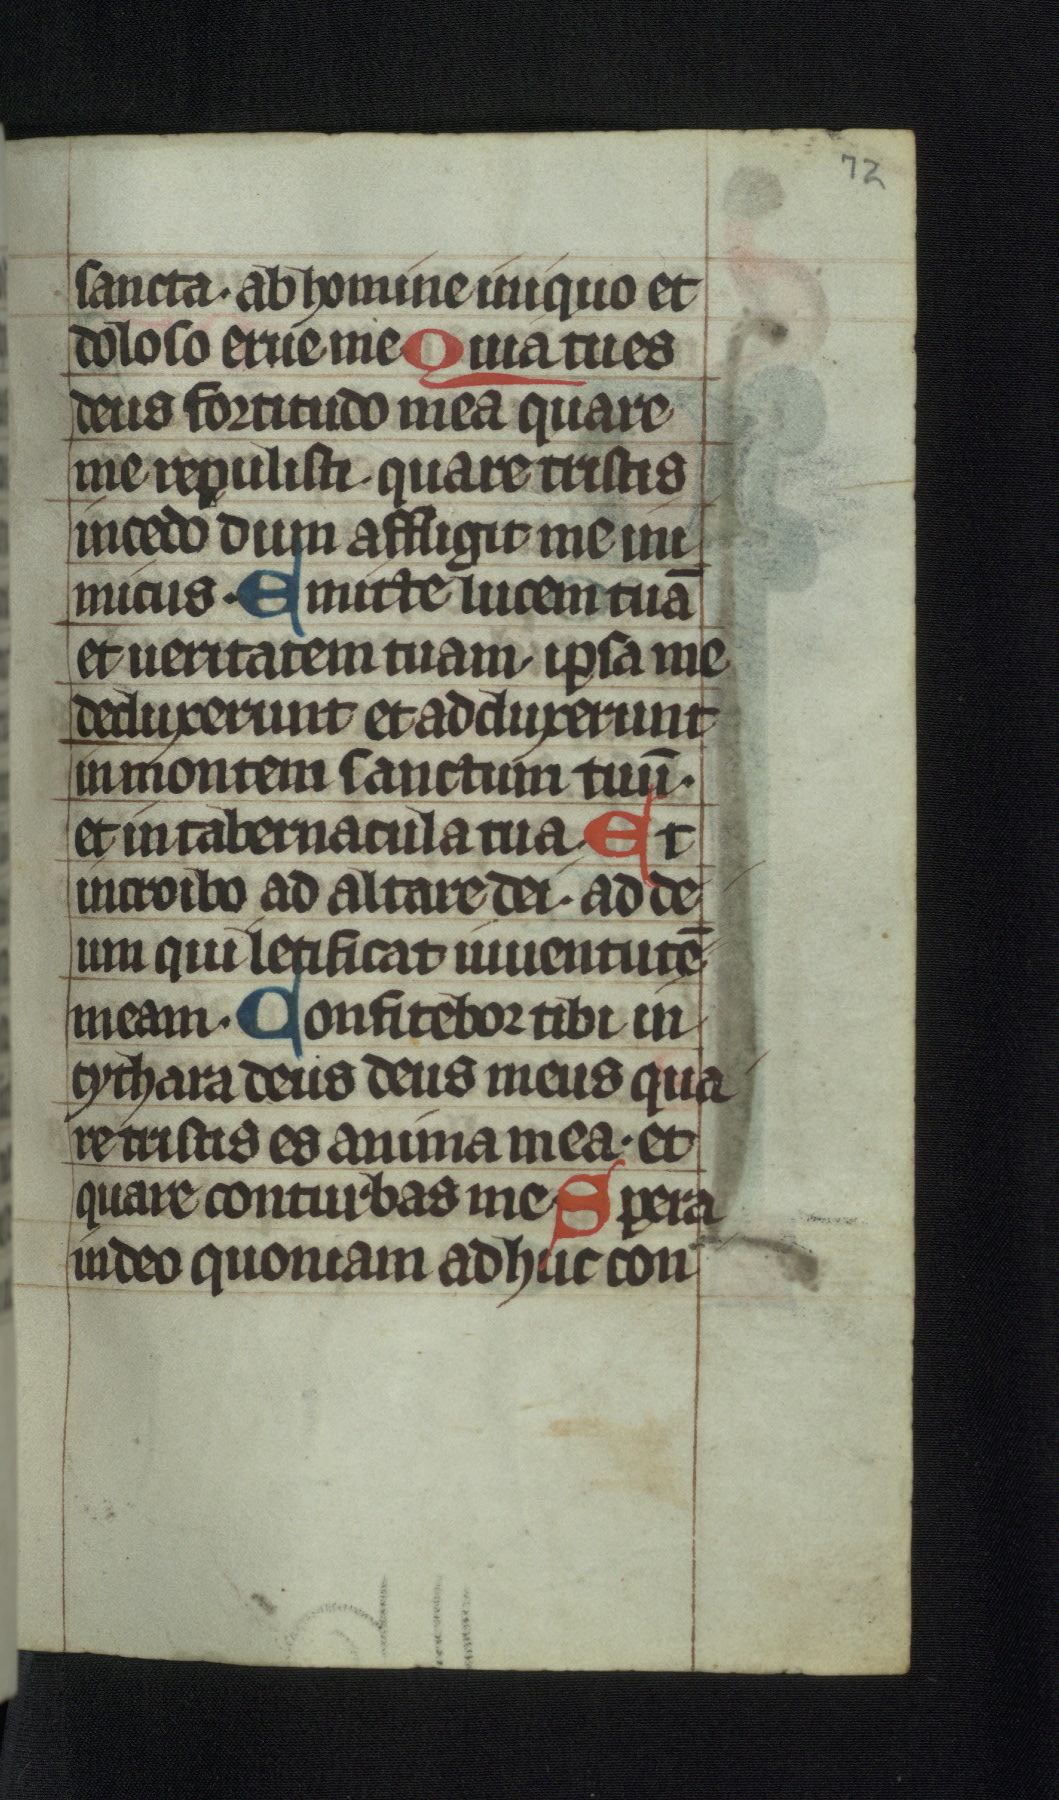 72
sancta. ab homine iniquo et
doloso erue me Quia tu es
deus fortitudo mea quare
me repulisti. quare tristis
incedo dum affligit me ini
micus. Emitte lucem tuā
et ueritatem tuam. ipsa me
deduxerunt et adduxerunt
in montem sanctum tuū.
et in tabernacula tua. Et
introibo ad altare dei. ad de
um qui letificat iuuentutē
meam. Confitebor tibi in
cythara deus deus meus qua
re tristis es anima mea. et
quare conturbas me Spera
in deo quoniam adhuc con